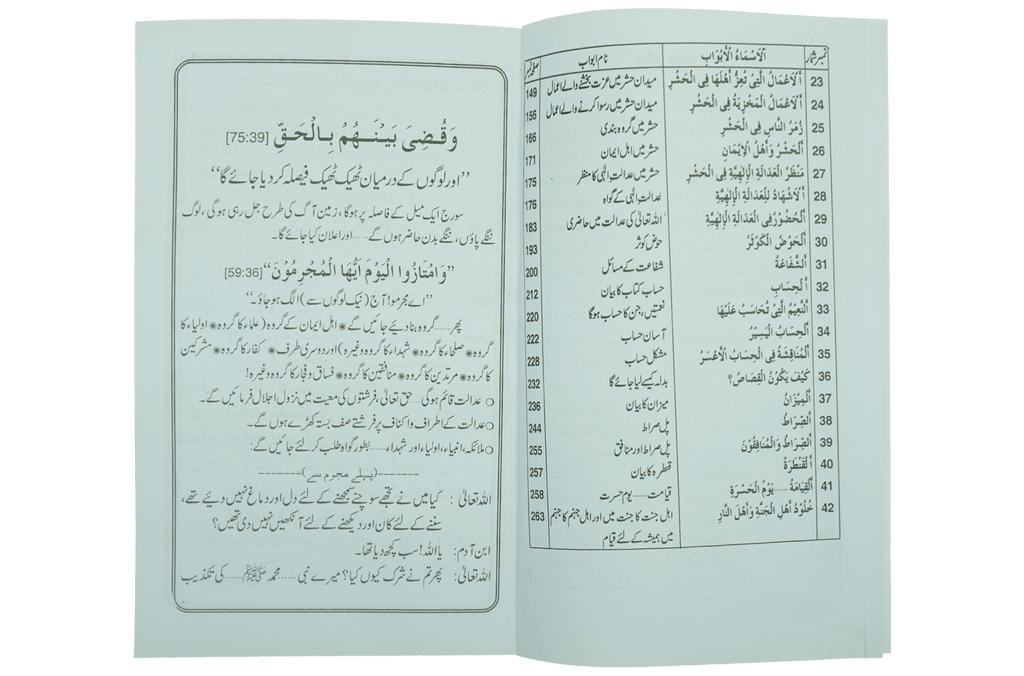 نمبر شمار	اَلْاَسْمَاءُ الْاَبْوَابِ	نام ابواب	صفحہ نمبر
23	اَلْاَعْمَالُ الَّتِیْ تُعِزُّ اَھْلَھَا فِی الْحَشْرِ	میدان حشر میں عزت بخشنے والے اعمال	149
24	اَلْاَعْمَالُ الْمَخْزِیَةُ فِی الْحَشْرِ	میدان حشر میں رسوا کرنے والے اعمال	156
25	زُمَرُ النَّاسِ فِی الْحَشْرِ	حشر میں گروہ بندی	166
26	اَلْحَشْرُ وَاَھْلُ الْاِیْمَانِ	حشر میں اہل ایمان	171
27	مَنْظَرُ الْعَدَالَةِ الْاِلٰھِیَّةِ فِی الْحَشْرِ	حشر میں عدالت الٰہی کا منظر	175
28	اَلْاَشْھَادُ لِلْعَدَالَةِ الْاِلٰھِیَّةِ	عدالت الٰہی کے گواہ	176
29	اَلْحُضُوْرُ فِی الْعَدَالَةِ الْاِلٰھِیَّةِ	اللہ تعالیٰ کی عدالت میں حاضری	183
30	اَلْحَوْضُ الْکَوْثَرُ	حوض کوثر	193
31	اَلشَّفَاعَةُ	شفاعت کے مسائل	200
32	اَلْحِسَابِ	حساب کتاب کا بیان	212
33	اَلنَّعِیْمُ الَّتِیْ تُحَاسَبُ عَلَیْھَا	نعمتیں، جن کا حساب ہوگا	220
34	اَلْحِسَابُ الْیَسِیْرُ	آسان حساب	222
35	اَلْمُنَاقَشَةُ فِی الْحِسَابُ الْاَعْسَرُ	مشکل حساب	228
36	کَیْفَ یَکُوْنُ الْقِصَاصُ؟	بدلہ کیسے لیا جائے گا	232
37	اَلْمِیْزَانُ	میزان کا بیان	236
38	اَلصِّرَاطُ	پل صراط	244
39	اَلصِّرَاطُ وَالْمُنَافِقُوْنَ	پل صراط اور منافق	255
40	اَلْقَنْطَرَةُ	قنطرہ کا بیان	257
41	اَلْقِیَامَةُ ...... یَوْمُ الْحَسْرَةِ	قیامت ...... یوم حسرت	258
42	خُلُوْدُ اَھْلِ الْجَنَّةِ وَاَھْلَ النَّارِ	اہل جنت کا جنت میں اور اہل جہنم کا جہنم	263
میں ہمیشہ کے لئے قیام
وَقُضِیَ بَیْنَھُمْ بِالْحَقِّ [75:39]
’’اور لوگوں کے درمیان ٹھیک ٹھیک فیصلہ کر دیا جائے گا‘‘
سورج ایک میل کے فاصلہ پر ہوگا، زمین آگ کی طرح جل رہی ہوگی، لوگ
ننگے پاؤں، ننگے بدن حاضر ہوں گے ...... اور اعلان کیا جائے گا۔
’’وَامْتَازُوا الْیَوْمَ اَیُّھَا الْمُجْرِمُوْنَ‘‘ [59:36]
’’اے مجرمو! آج (نیک لوگوں سے) الگ ہو جاؤ۔‘‘
پھر ...... گروہ بنا دیئے جائیں گے ٭ اہل ایمان کے گروہ (علماء کا گروہ ٭ اولیاء کا
گروہ ٭ صلحاء کا گروہ ٭ شہداء کا گروہ وغیرہ) اور دوسری طرف ٭ کفار کا گروہ ٭ مشرکین
کا گروہ ٭ مرتدین کا گروہ ٭ منافقین کا گروہ ٭ فساق و فجار کا گروہ وغیرہ!
○ عدالت قائم ہوگی ...... حق تعالیٰ، فرشتوں کی معیت میں نزول اجلال فرمائیں گے۔
○ عدالت کے اطراف و اکناف پر فرشتے صف بستہ کھڑے ہوں گے۔
○ ملائکہ، انبیاء، اولیاء اور شہداء ...... بطور گواہ طلب کر لئے جائیں گے:
-------(پہلے مجرم سے)-------
اللہ تعالیٰ : کیا میں نے تجھے سوچنے سمجھنے کے لئے دل اور دماغ نہیں دیئے تھے،
سننے کے لئے کان اور دیکھنے کے لئے آنکھیں نہیں دی تھیں؟
ابن آدم: یا اللہ! سب کچھ دیا تھا۔
اللہ تعالیٰ: پھر تم نے شرک کیوں کیا؟ میرے نبی ...... محمد ﷺ ...... کی تکذیب